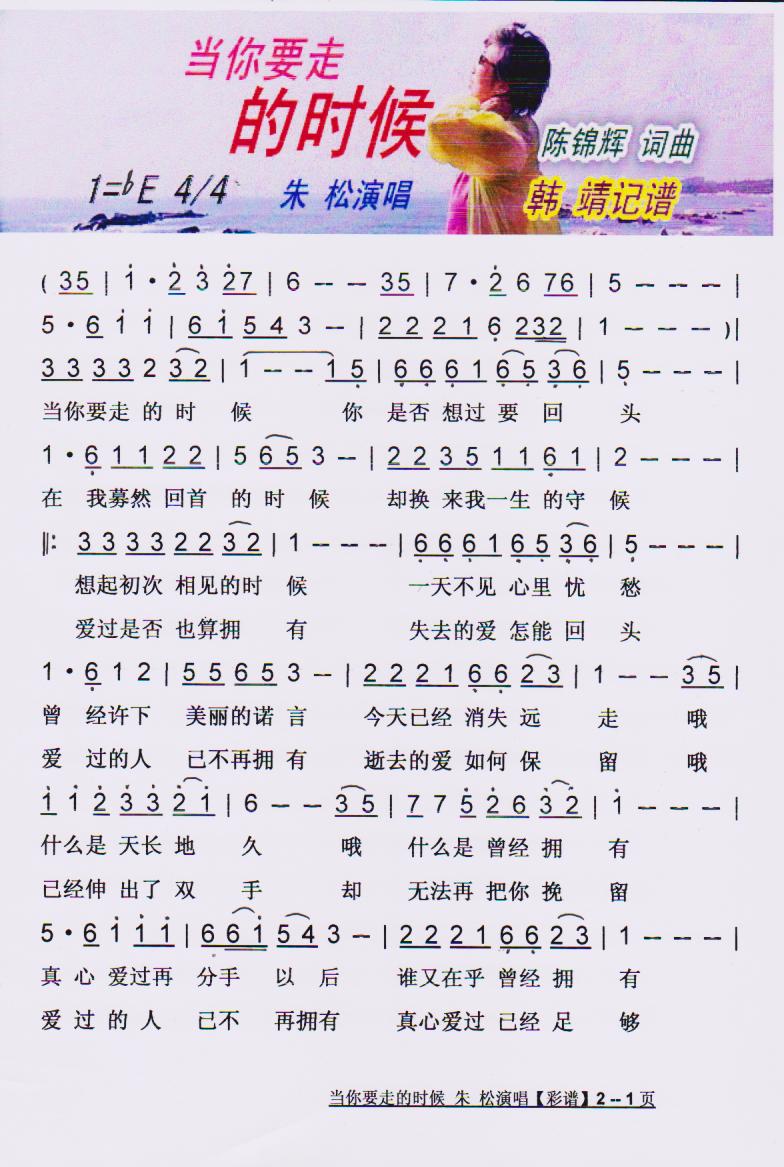 当你要走
的时候
陈锦辉 词曲
1=♭E 4/4 朱 松演唱 韩 靖记谱
( 35 | 1 · 2 3 27 | 6 - - 35 | 7 · 2 6 76 | 5 - - - |
5 · 6 1 1 | 61 54 3 - | 22 21 6 232 | 1 - - - )|
33 33 2 32 | 1 - - 15 | 66 61 65 36 | 5 - - - |
当你要走 的 时 候 你 是否 想过 要 回 头
1 · 6 11 22 | 5 65 3 - | 22 35 11 61 | 2 - - - |
在 我蓦然 回首 的 时 候 却换 来我一生 的守 候
‖: 33 33 22 32 | 1 - - - | 66 61 65 36 | 5 - - - |
想起初次 相见的时 候 一天不见 心里 忧 愁
爱过是否 也算拥 有 失去的爱 怎能 回 头
1 · 6 1 2 | 55 65 3 - | 22 21 66 23 | 1 - - 35 |
曾 经许下 美丽的诺 言 今天已经 消失 远 走 哦
爱 过的人 已不再拥 有 逝去的爱 如何 保 留 哦
1 1 2 33 21 | 6 - - 35 | 7 7 52 6 32 | 1 - - - |
什么是 天长 地 久 哦 什么是 曾经 拥 有
已经伸 出了 双 手 却 无法再 把你 挽 留
5 · 6 1 11 | 661 54 3 - | 22 21 66 23 | 1 - - - |
真 心 爱过再 分手 以 后 谁又在乎 曾经 拥 有
爱 过 的 人 已不 再拥有 真心爱过 已经 足 够
当你要走的时候 朱 松演唱【彩谱】2 -- 1 页